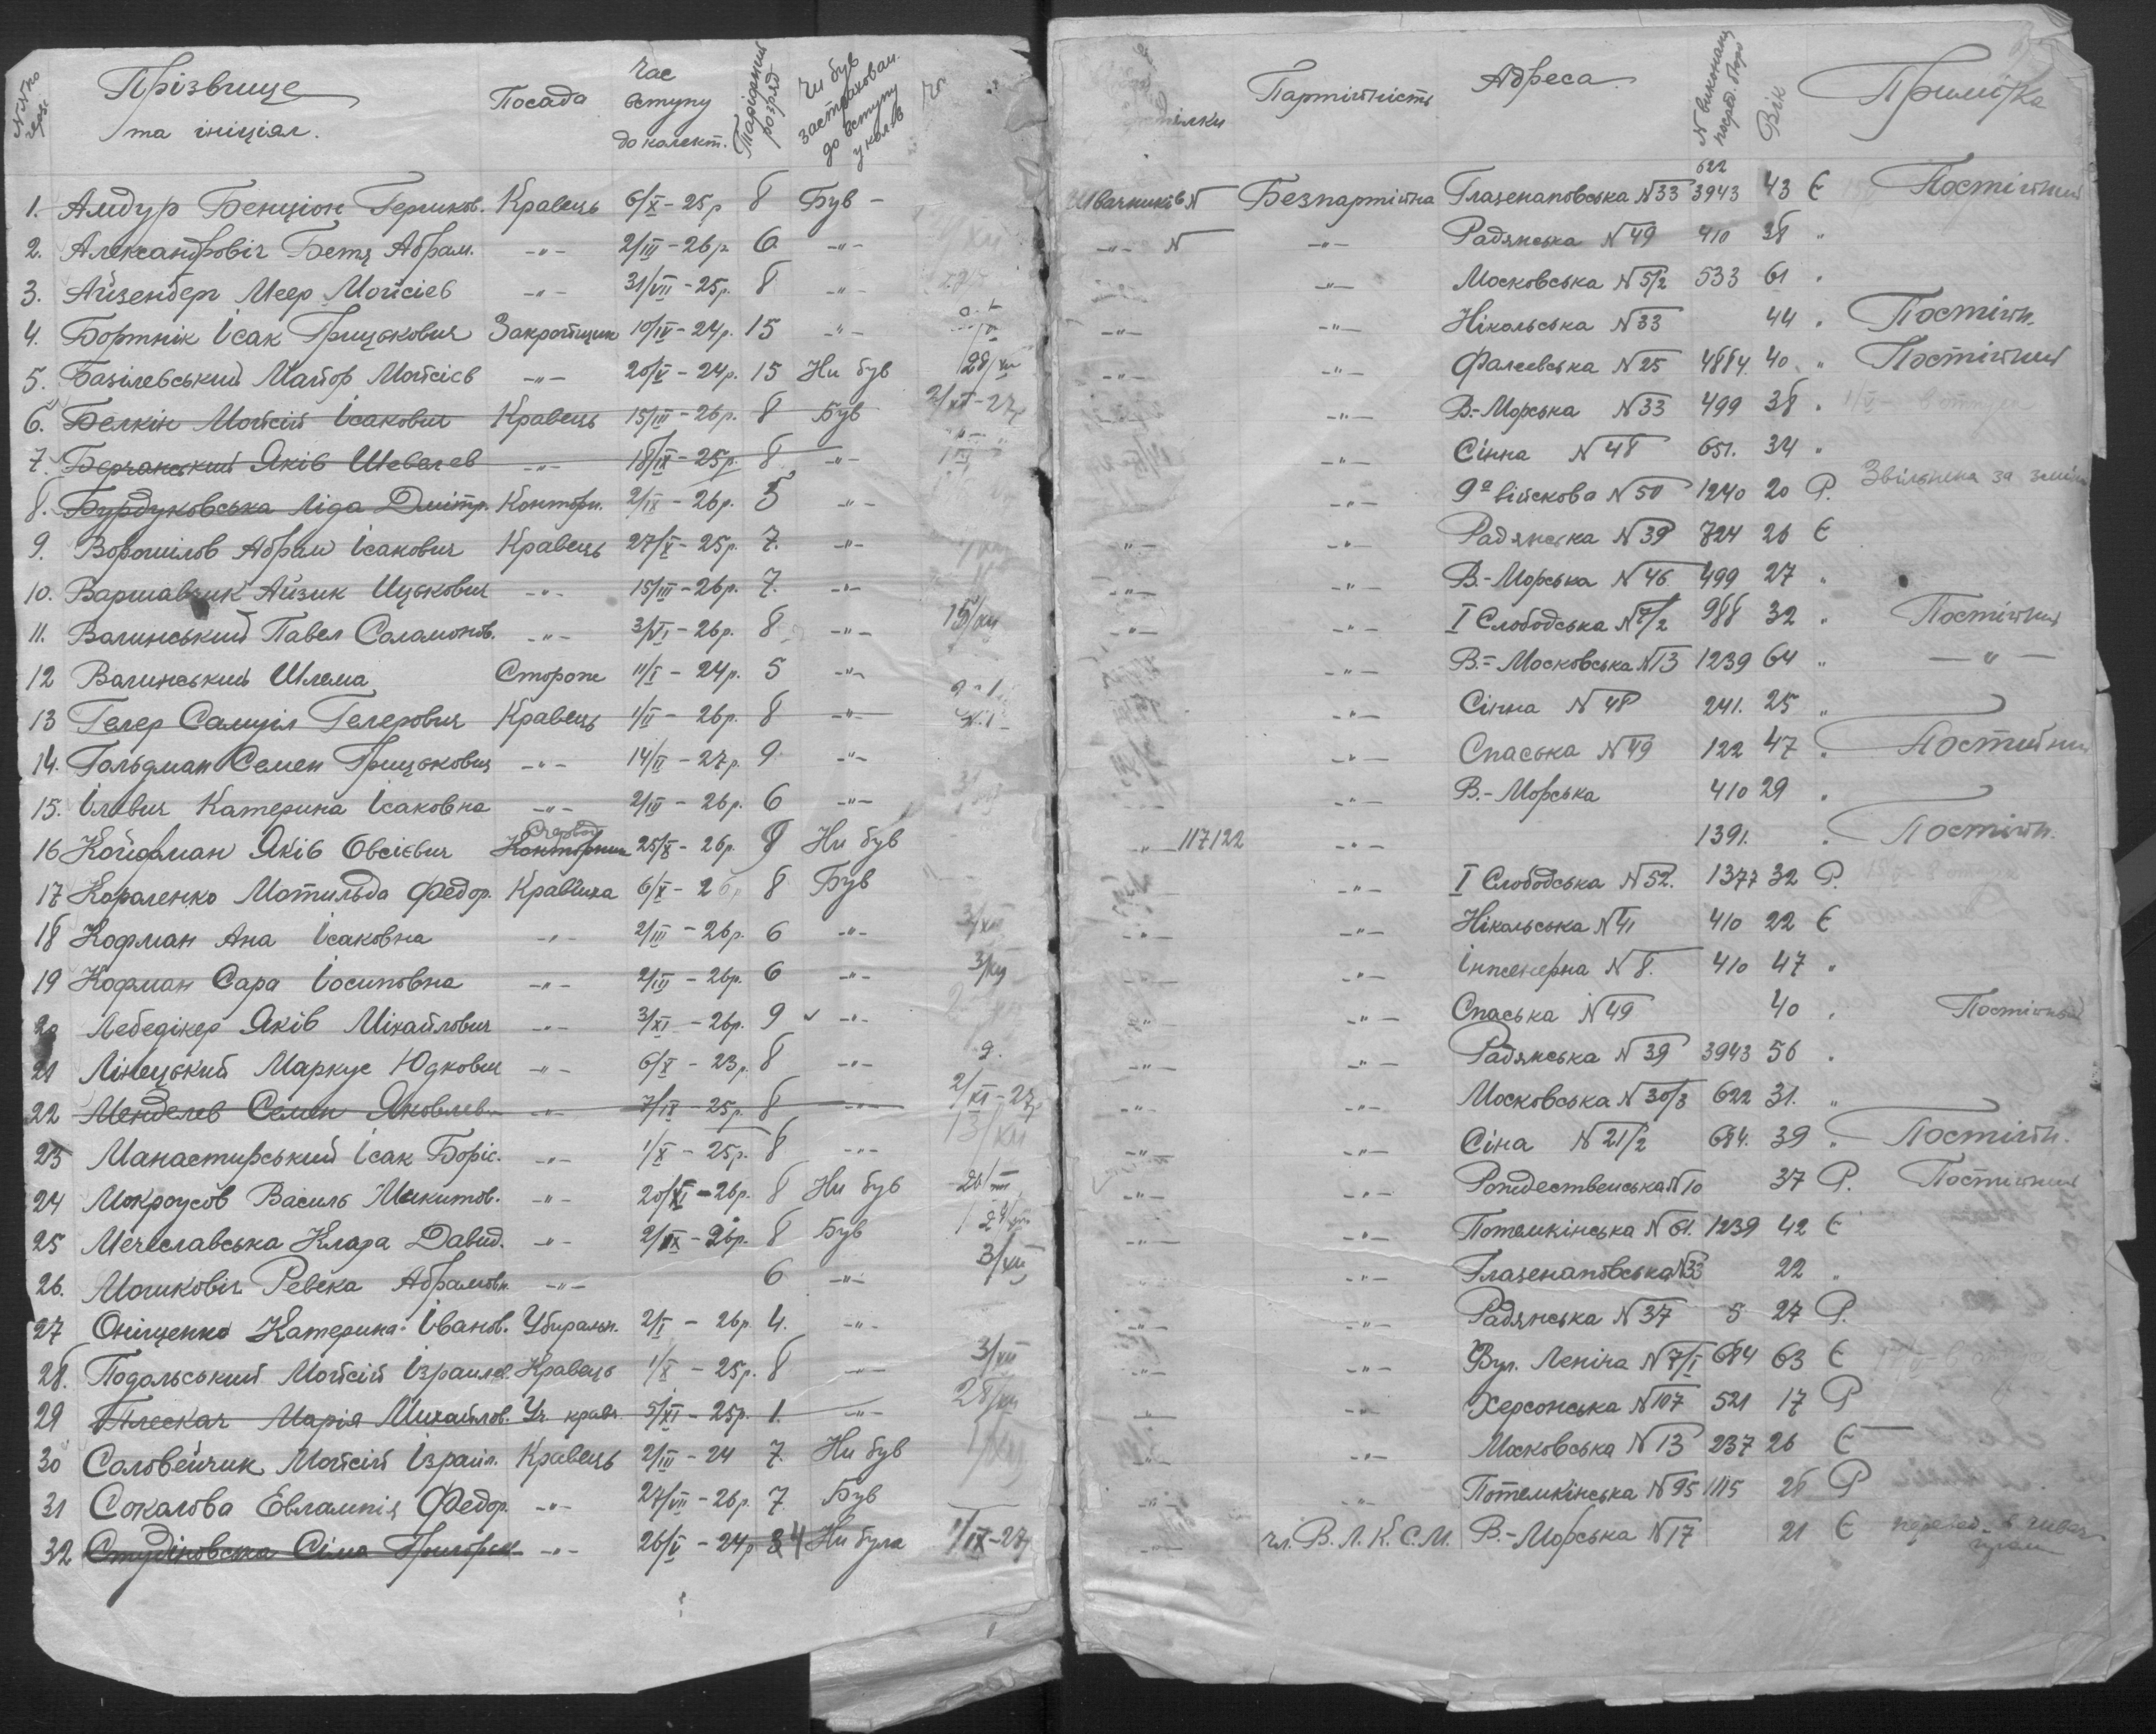 №№ по черз. Прізвище та ініціял. Посада Час вступу до колект. Таріфний розряд Чи був застрахован. до вступу у колек Партійність Адреса № виконанц посред. бюро Вік Примітка
1. Амдур Бенціон Гершков. Кравець 6/X – 25р 8 Був – Швачників N Безпартійна Глазенаповська N33 622 3943 43 Є Постійний
2. Александровіч Бетя Абрам. –"– 2/III – 26р. 6 –"– –"– N –"– Радянська N49 410 38 "
3. Айзенберг Меер Мойсієв –"– 31/VII – 25р. 8 –"– –"– –"– Московська N5/2 533 61 "
4. Бортнік Ісак Грицькович Закройщик 10/IV – 24р. 15 –"– –"– –"– Нікольська N33 44 " Постійн.
5. Базілевський Майор Мойсієв –"– 20/V – 24р. 15 Ни був 28/XII –"– –"– Фалеєвська N25 4884 40 " Постійний
6. Белкін Мойсій Ісакович Кравець 15/III – 26р. 8 Був 2/XI – 27р –"– В.-Морська N33 499 38 "
7. Берчанський Яків Шевелев –"– 18/IX – 25р. 8 –"– –"– Сінна N48 651. 34 "
8. Бурдуковська Ліда Дмітр. Конторн. 2/IX – 26р. 5 –"– –"– 9а війскова N50 1240 20 Р. Звільнена за
9. Ворошілов Абрам Ісакович Кравець 27/X – 25р. 7. –"– –"– –"– Радянська N39 724 26 Є
10. Варшавчик Айзик Ицькович –"– 15/III – 26р. 7. –"– –"– –"– В.-Морська N46 499 27 "
11. Вагинський Павел Саламонов. –"– 3/VI – 26р. 8 –"– 15/XII –"– –"– I Слободська N7/2 988 32 " Постійний
12 Вагинський Шлема Сторож 11/I – 24р. 5 –"– –"– В.-Московська N13 1239 64 " –"–
13 Гелер Самуіл Гелерович Кравець 1/II – 26р. 8 –"– –"– Сінна N48 241. 25 "
14. Гольдман Семен Грицькович –"– 14/II – 27р. 9 –"– –"– Спаська N49 122 47 " Постийний
15. Ілевич Катерина Ісаковна –"– 2/III – 26р. 6 –"– –"– В.-Морська 410 29 "
16 Койфман Яків Овсієвич Конторник 25/X – 26р. 9 Ни був –"– 117122 –"– 1391. " Постійн.
17 Короленко Мотильда Федор. Кравчиха 6/X – 26р 8 Був –"– I Слободська N52. 1377 32 Р.
18 Кофман Ана Ісаковна –"– 2/III – 26р. 6 –"– 3/XII –"– –"– Нікольська N41 410 22 Є
19 Кофман Сара Іосиповна –"– 2/III – 26р. 6 –"– 3/XII –"– Інженерна N8. 410 47 "
20 Лебедікер Яків Міхайлович –"– 3/XI – 26р. 9 –"– –"– –"– Спаська N49 40 " Постійный
21 Лінецький Маркус Юдкович –"– 6/X – 23р. 8 –"– –"– –"– Радянська N39 3943 56 "
22 Менделев Семен Яковлев. –"– 7/IX – 25р. 8 –"– 2/XI – 27р –"– –"– Московська N30/3 622 31. "
23 Манастирський Ісак Боріс. –"– 1/X – 25р. 8 –"– 13/XII –"– –"– Сіна N21/2 684. 39 " Постійн.
24 Мокроусов Василь Микитов. –"– 20/XI – 26р. 8 Ни був –"– –"– Рождественська N10 37 Р. Постійний
25 Мечеславська Клара Давид. –"– 2/IX – 26р. 8 Був –"– –"– Потемкінська N61. 1239 42 Є
26. Мошковіч Ревека Абрамовн. –"– 6 –"– 3/XII –"– Глазенаповська N33 22 "
27 Оніщенко Катерина Іванов. Убиральн. 2/I – 26р. 4. –"– –"– –"– Радянська N37 5 27 Р.
28. Подольський Мойсій Ізраилев. Кравець 1/X – 25р. 8 –"– 3/XII –"– –"– Вул. Леніна N7/1 684 63 Є
29 Плескач Марія Михайлов. Уч кравч. 5/XI – 25р. 1. –"– 28/XII –"– –"– Херсонська N107 521 17 Р
30 Соловейчик Мойсій Ізраил. Кравець 2/III – 24 7. Ни був 1/XII –"– –"– Московська N13 237 26 Є
31 Сокалова Евлампія Федор. –"– 27/VII – 26р. 7 Був –"– –"– Потемкінська N95 1115 26 Р
32 Студіновська Сіма Григорєв. –"– 26/V – 24р 4 Ни була 1/IX–27 –"– чл. В.Л.К.С.М. В.-Морська N17 21 Є